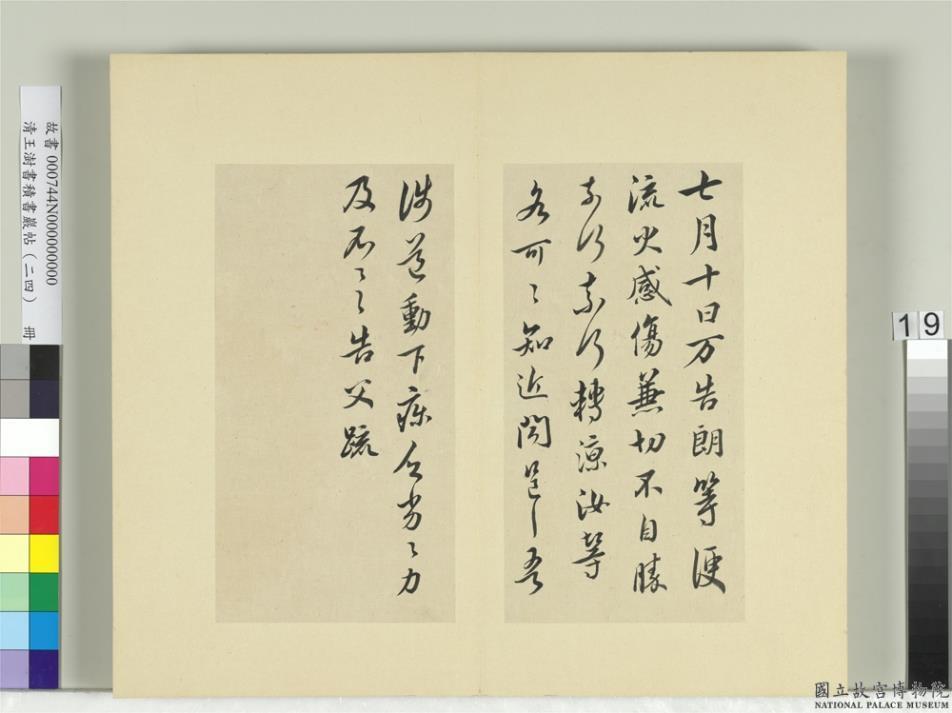 七月十日万告朗等便
流火感傷兼切不自勝
奈何奈何轉涼汝等
各可〻知近問邑〻吾
涉道動下疾乏劣〻力
及不〻〻告父疏
故書 000744N000000000
清王澍書積書巖帖（二四） 冊
19
國立故宮博物院
NATIONAL PALACE MUSEUM